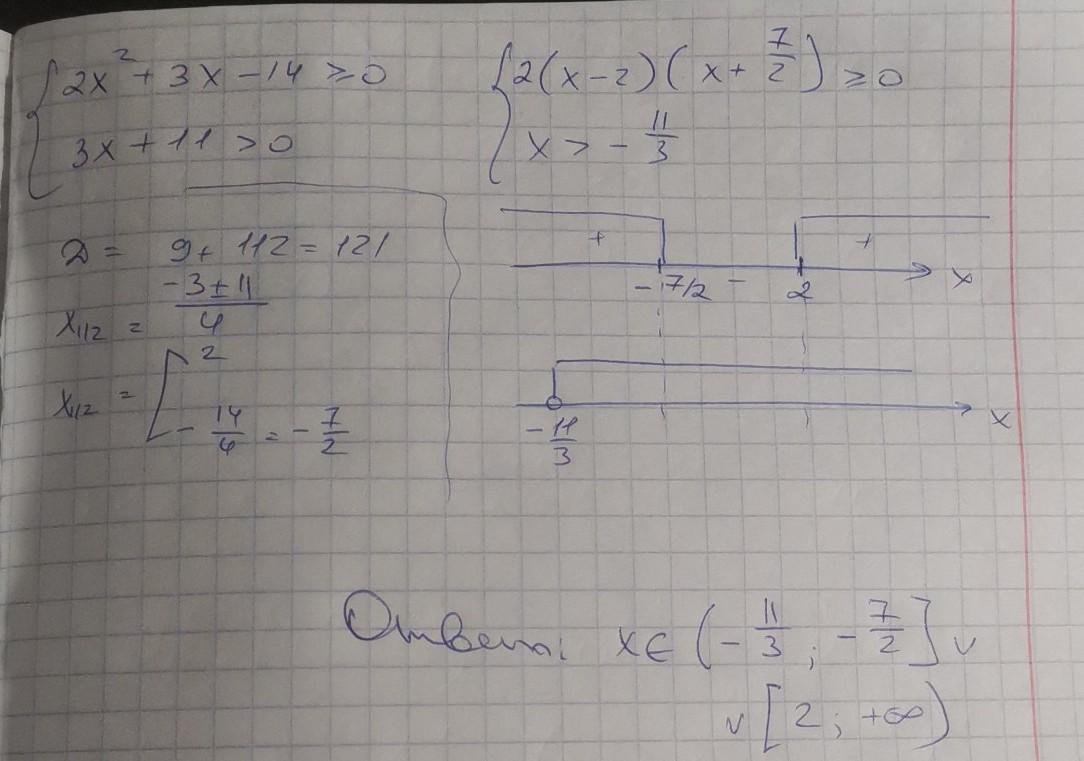 { 2x² + 3x - 14 ≥ 0
3x + 11 > 0
D = 9 + 112 = 121
x₁,₂ = (-3 ± 11)/4
x₁,₂ = [ 2
- 14/4 = - 7/2
{ 2(x - 2)(x + 7/2) ≥ 0
x > - 11/3
+ +
- 7/2 - 2 x
- 11/3 x
Ответ: x ∈ (- 11/3 ; - 7/2] ∪
∪ [2 ; +∞)